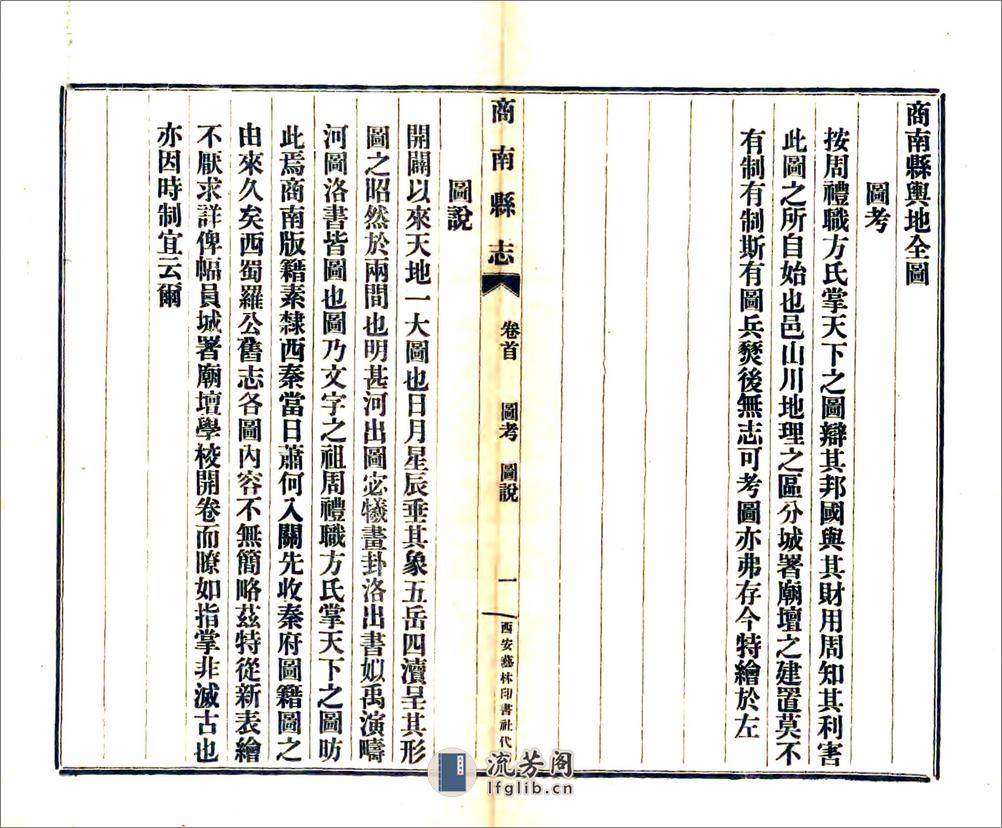 商南縣輿地全圖
圖考
按周禮職方氏掌天下之圖辯其邦國與其財用周知其利害
此圖之所自始也邑山川地理之區分城署廟壇之建置莫不
有制有制斯有圖兵燹後無志可考圖亦弗存今特繪於左
商南縣志
卷首
圖考
圖說
一
西安藝林印書社代
圖說
開闢以來天地一大圖也日月星辰垂其象五岳四瀆呈其形
圖之昭然於兩間也明甚河出圖宓犧畫卦洛出書姒禹演疇
河圖洛書皆圖也圖乃文字之祖周禮職方氏掌天下之圖昉
此焉商南版籍素隸西秦當日蕭何入關先收秦府圖籍圖之
由來久矣西蜀羅公舊志各圖內容不無簡略茲特從新表繪
不厭求詳俾幅員城署廟壇學校開卷而瞭如指掌非滅古也
亦因時制宜云爾
流芳阁
lfglib.cn